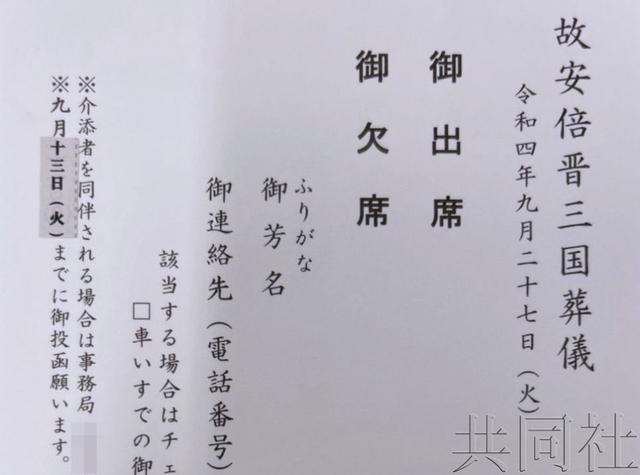 故安倍晋三国葬儀
令和四年九月二十七日（火）
御出席
御欠席
ふりがな
御芳名
御連絡先（電話番号）
該当する場合はチェ
□車いすでの御
※介添者を同伴される場合は事務局
※九月十三日（火）までに御投函願います。
共同社